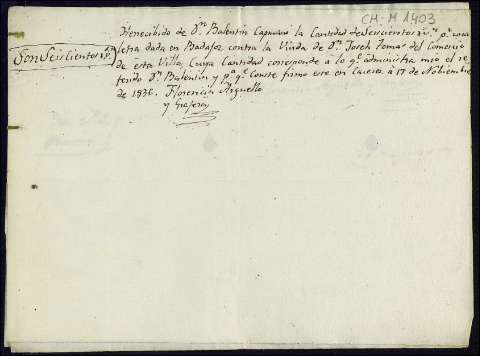 CM-M 1403
He recibido de Dn. Balentin Capucion la Cantidad de Seiscientos rs. vn. pr. una
Son Seiscientos rs. letra dada en Badajoz contra la Viuda de Dn. Josef Tomas del Comercio
de esta Villa, Cuya Cantidad corresponde a lo qe. administra mio el re
ferido Dn. Balentin y pa. qe. Conste firmo este en Caceres à 17 de Nobiembre
de 1836. Florencio Arguello
y Grajeras